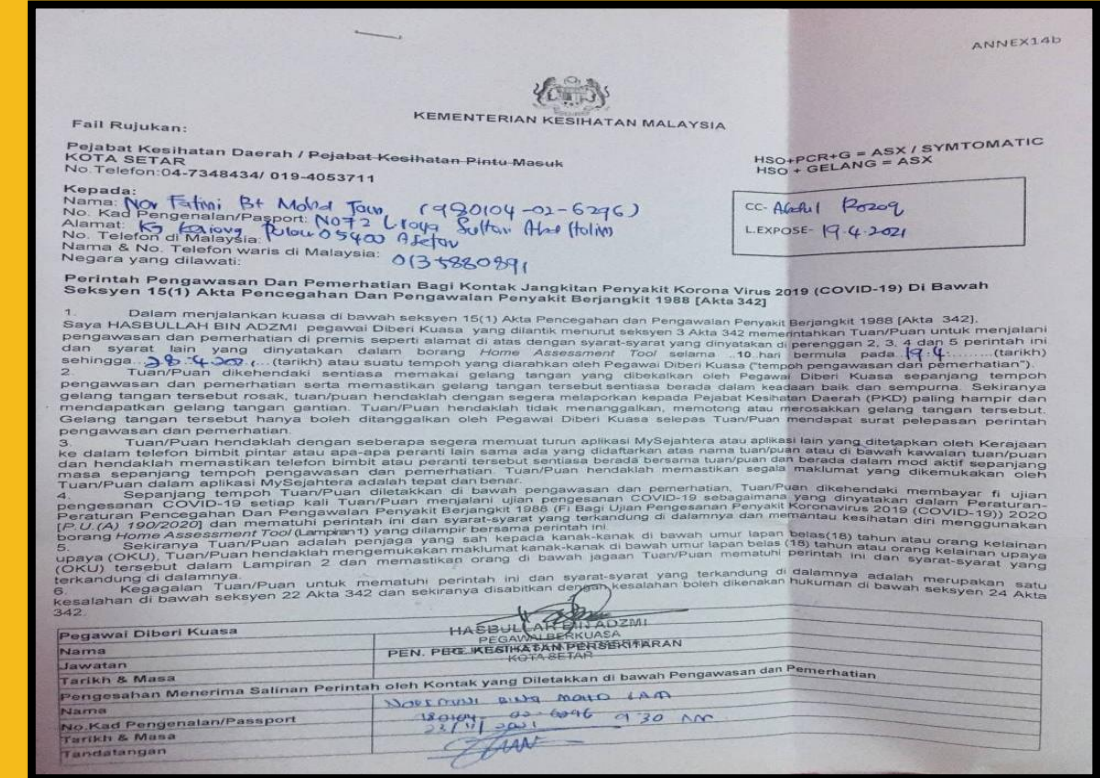 ANNEX14b
KEMENTERIAN KESIHATAN MALAYSIA
Fail Rujukan:
Pejabat Kesihatan Daerah / Pejabat Kesihatan Pintu Masuk
KOTA SETAR
No.Telefon:04-7348434/ 019-4053711
HSO+PCR+G = ASX / SYMTOMATIC
HSO + GELANG = ASX
Kepada:
Nama: Nor Fatini Bt Mohd (980104-02-6296)
No. Kad Pengenalan/Pasport: No72 Sultan
Alamat: Kg Pulau 05400 A.Setar
No. Telefon di Malaysia:
Nama & No. Telefon waris di Malaysia:
Negara yang dilawati: 0135880891
CC- Abdul Rozoq
L.EXPOSE- 19.4.2021
Perintah Pengawasan Dan Pemerhatian Bagi Kontak Jangkitan Penyakit Korona Virus 2019 (COVID-19) Di Bawah
Seksyen 15(1) Akta Pencegahan Dan Pengawalan Penyakit Berjangkit 1988 [Akta 342]
1. Dalam menjalankan kuasa di bawah seksyen 15(1) Akta Pencegahan Dan Pengawalan Penyakit Berjangkit 1988 [Akta 342],
Saya HASBULLAH BIN ADZMI pegawai Diberi Kuasa yang dilantik menurut seksyen 3 Akta 342 memerintahkan Tuan/Puan untuk menjalani
pengawasan dan pemerhatian di premis seperti alamat di atas dengan syarat-syarat yang dinyatakan di perenggan 2, 3, 4 dan 5 perintah ini
dan syarat lain yang dinyatakan dalam borang Home Assessment Tool selama ..10.hari bermula pada 19.4.........(tarikh)
sehingga..28.4.2021....(tarikh) atau suatu tempoh yang diarahkan oleh Pegawai Diberi Kuasa ("tempoh pengawasan dan pemerhatian").
2. Tuan/Puan dikehendaki sentiasa memakai gelang tangan yang dibekalkan oleh Pegawai Diberi Kuasa sepanjang tempoh
pengawasan dan pemerhatian serta memastikan gelang tangan tersebut sentiasa berada dalam keadaan baik dan sempurna. Sekiranya
gelang tangan tersebut rosak, tuan/puan hendaklah dengan segera melaporkan kepada Pejabat Kesihatan Daerah (PKD) paling hampir dan
mendapatkan gelang tangan gantian. Tuan/Puan hendaklah tidak menanggalkan, memotong atau merosakkan gelang tangan tersebut.
Gelang tangan tersebut hanya boleh ditanggalkan oleh Pegawai Diberi Kuasa selepas Tuan/Puan mendapat surat pelepasan perintah
pengawasan dan pemerhatian.
3. Tuan/Puan hendaklah dengan seberapa segera memuat turun aplikasi MySejahtera atau aplikasi lain yang ditetapkan oleh Kerajaan
ke dalam telefon bimbit pintar atau apa-apa peranti lain sama ada yang didaftarkan atas nama tuan/puan atau di bawah kawalan tuan/puan
dan hendaklah memastikan telefon bimbit atau peranti tersebut sentiasa berada bersama tuan/puan dan berada dalam mod aktif sepanjang
masa sepanjang tempoh pengawasan dan pemerhatian. Tuan/Puan hendaklah memastikan segala maklumat yang dikemukakan oleh
Tuan/Puan dalam aplikasi MySejahtera adalah tepat dan benar.
4. Sepanjang tempoh Tuan/Puan diletakkan di bawah pengawasan dan pemerhatian, Tuan/Puan dikehendaki membayar fi ujian
pengesanan COVID-19 setiap kali Tuan/Puan menjalani ujian pengesanan COVID-19 sebagaimana yang dinyatakan dalam Peraturan-
Peraturan Pencegahan Dan Pengawalan Penyakit Berjangkit 1988 (Fi Bagi Ujian Pengesanan Penyakit Koronavirus 2019 (COVID-19)) 2020
[P.U.(A) 190/2020] dan mematuhi perintah ini dan syarat-syarat yang terkandung di dalamnya dan memantau kesihatan diri menggunakan
borang Home Assessment Tool (Lampiran 1) yang dilampir bersama perintah ini.
5. Sekiranya Tuan/Puan adalah penjaga yang sah kepada kanak-kanak di bawah umur lapan belas(18) tahun atau orang kelainan
upaya (OKU), Tuan/Puan hendaklah mengemukakan maklumat kanak-kanak di bawah umur lapan belas (18) tahun atau orang kelainan upaya
(OKU) tersebut dalam Lampiran 2 dan memastikan orang di bawah jagaan Tuan/Puan mematuhi perintah ini dan syarat-syarat yang
terkandung di dalamnya.
6. Kegagalan Tuan/Puan untuk mematuhi perintah ini dan syarat-syarat yang terkandung di dalamnya adalah merupakan satu
kesalahan di bawah seksyen 22 Akta 342 dan sekiranya disabitkan dengan kesalahan boleh dikenakan hukuman di bawah seksyen 24 Akta
342.
Pegawai Diberi Kuasa
HASBULLAH BIN ADZMI
PEGAWAI BERKUASA
Nama
PEN. PEG. KESIHATAN PERSEKITARAN
KOTA SETAR
Jawatan
Tarikh & Masa
Pengesahan Menerima Salinan Perintah oleh Kontak yang Diletakkan di bawah Pengawasan dan Pemerhatian
Nama
No.Kad Pengenalan/Passport
Tarikh & Masa 9 30 AM
Tandatangan